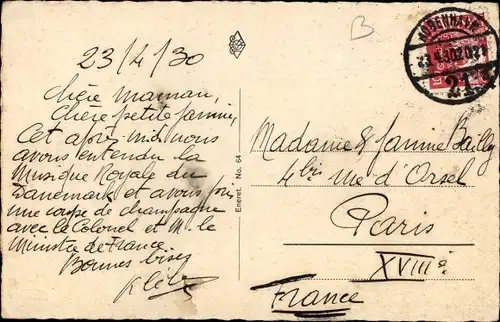 B
KØBENHAVN
23.4.30
23/4/30
Chère maman,
Chère petite Janine,
Cet après-midi nous
avons entendu la
Musique Royale du
Danemark et avons pris
une coupe de champagne
avec le Colonel et M. le
Ministre de France.
Bonnes bises
Eneret. No. 64
Madame & Janine Bailly
4bis rue d'Orsel
Paris
XVIIIè
France